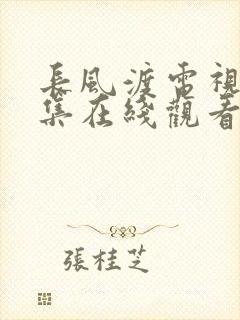 長風渡電視
集在綫觀看
張桂芝